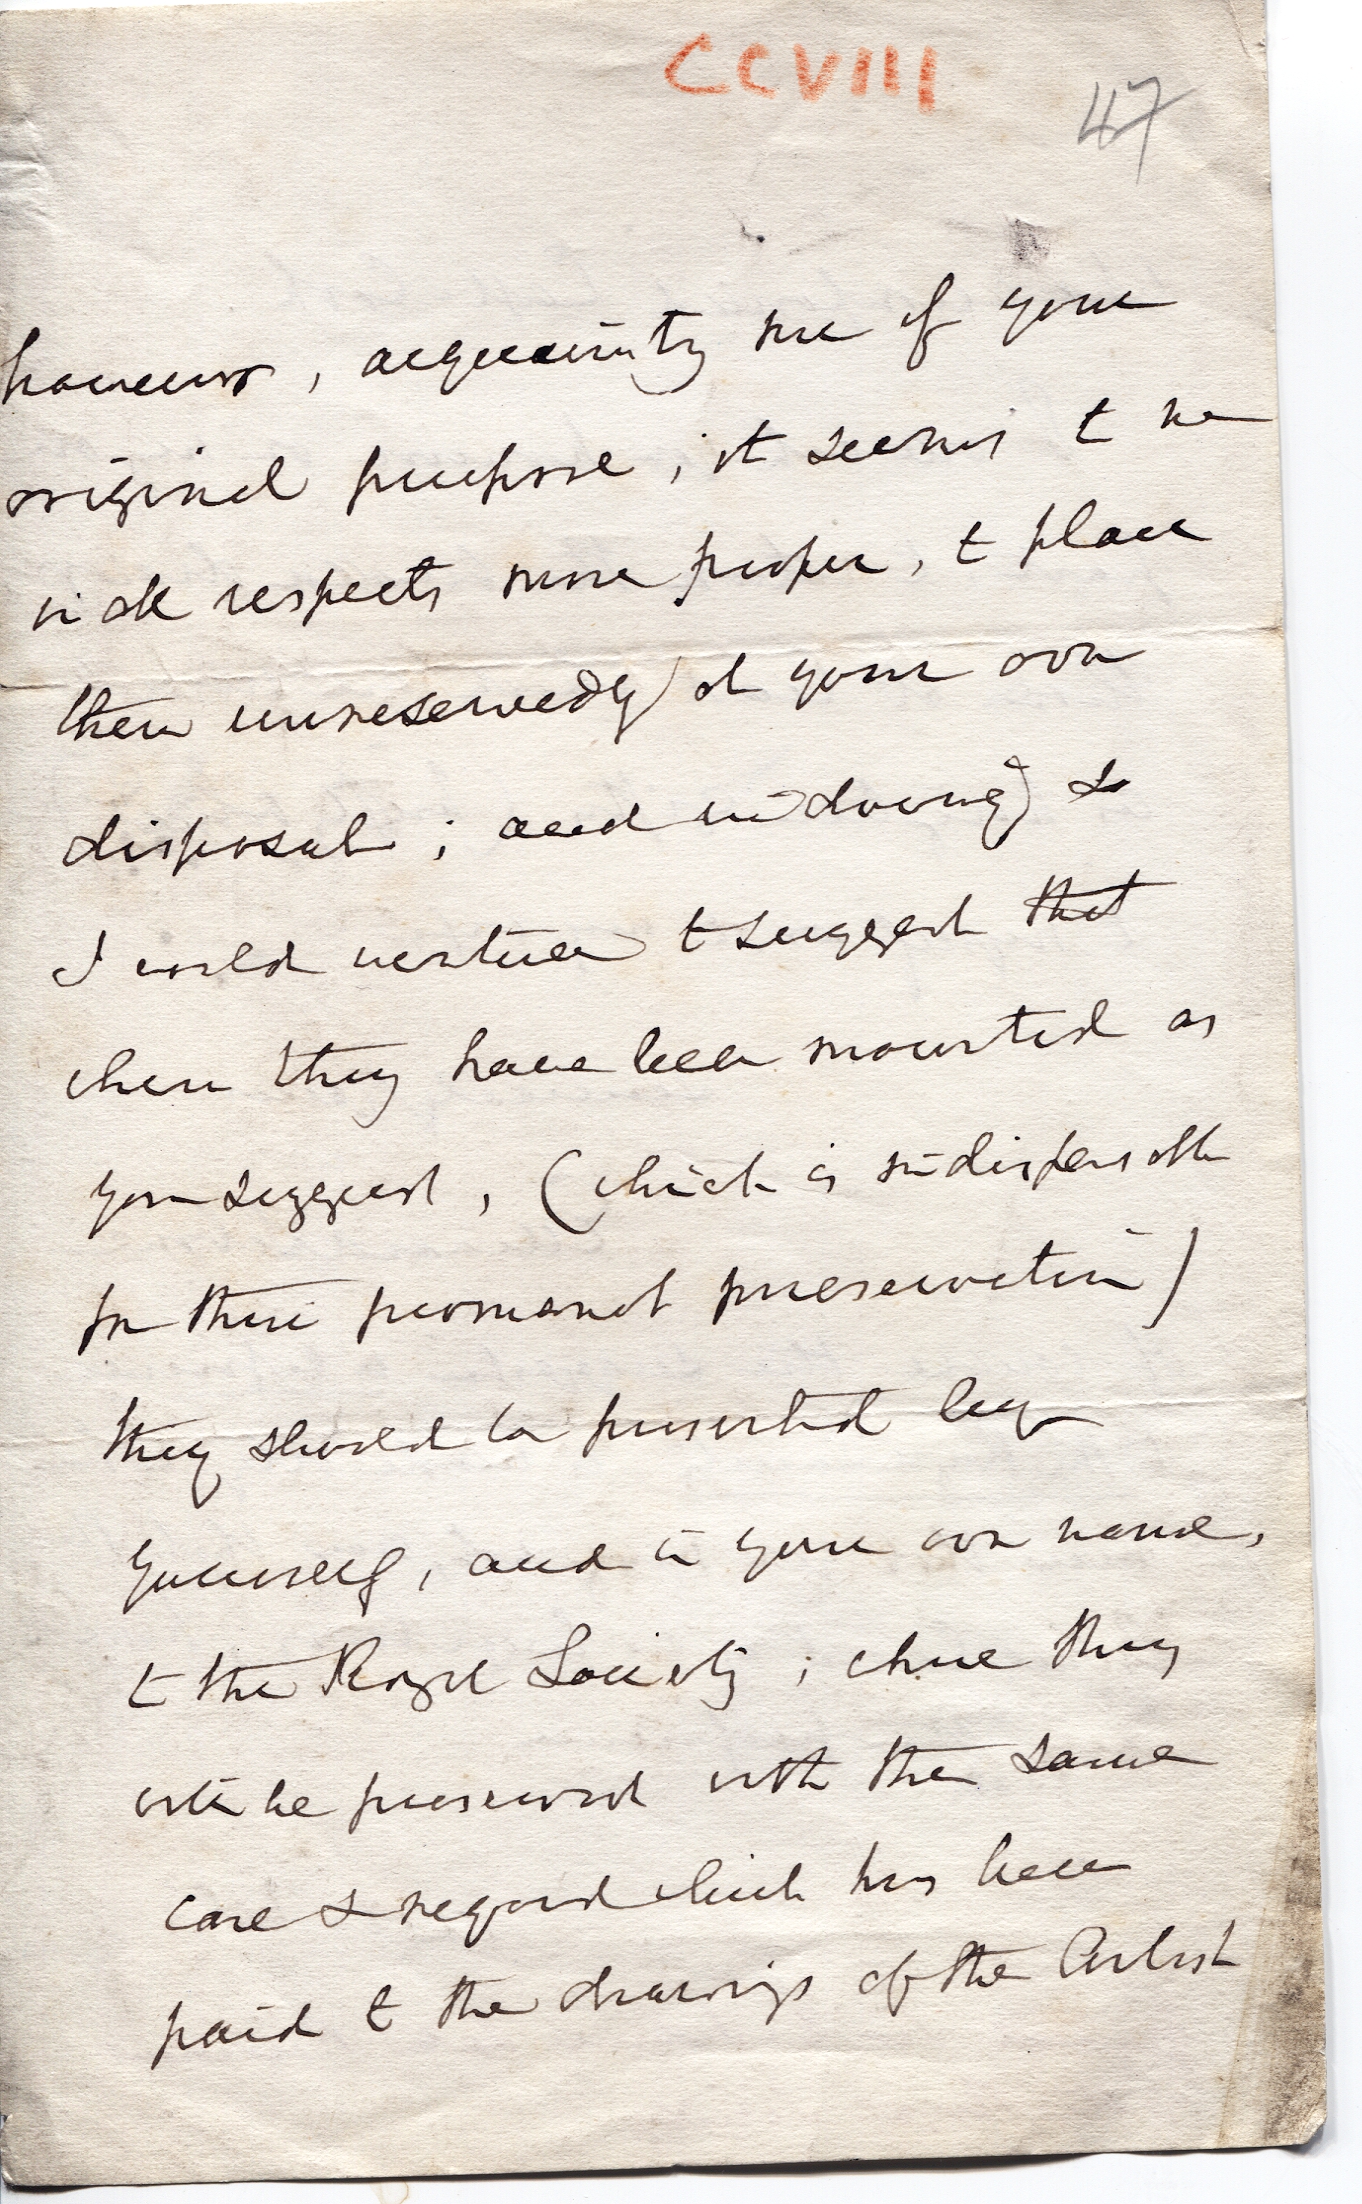 CCVIII
47
however, acquainting me of your
original purpose, it seems to me
in all respects more proper, to place
them unreservedly at your own
disposal; and in doing so
I would venture to suggest that
when they have been mounted as
you suggest, (which is indispensable
for their permanent preservation)
they should be presented by
yourself, and in your own name,
to the Royal Society; where they
will be preserved with the same
care & regard which has been
paid to the drawings of the Artist